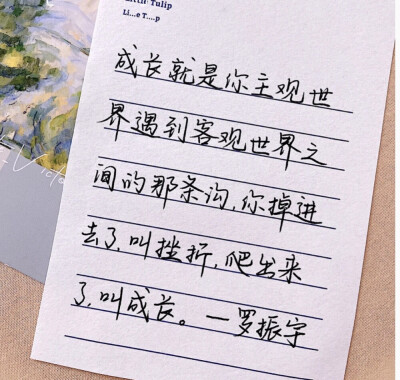 Tulip
成长就是你主观世
界遇到客观世界之
间的那条沟,你掉进
去了,叫挫折,爬出来
了,叫成长。一罗振宇